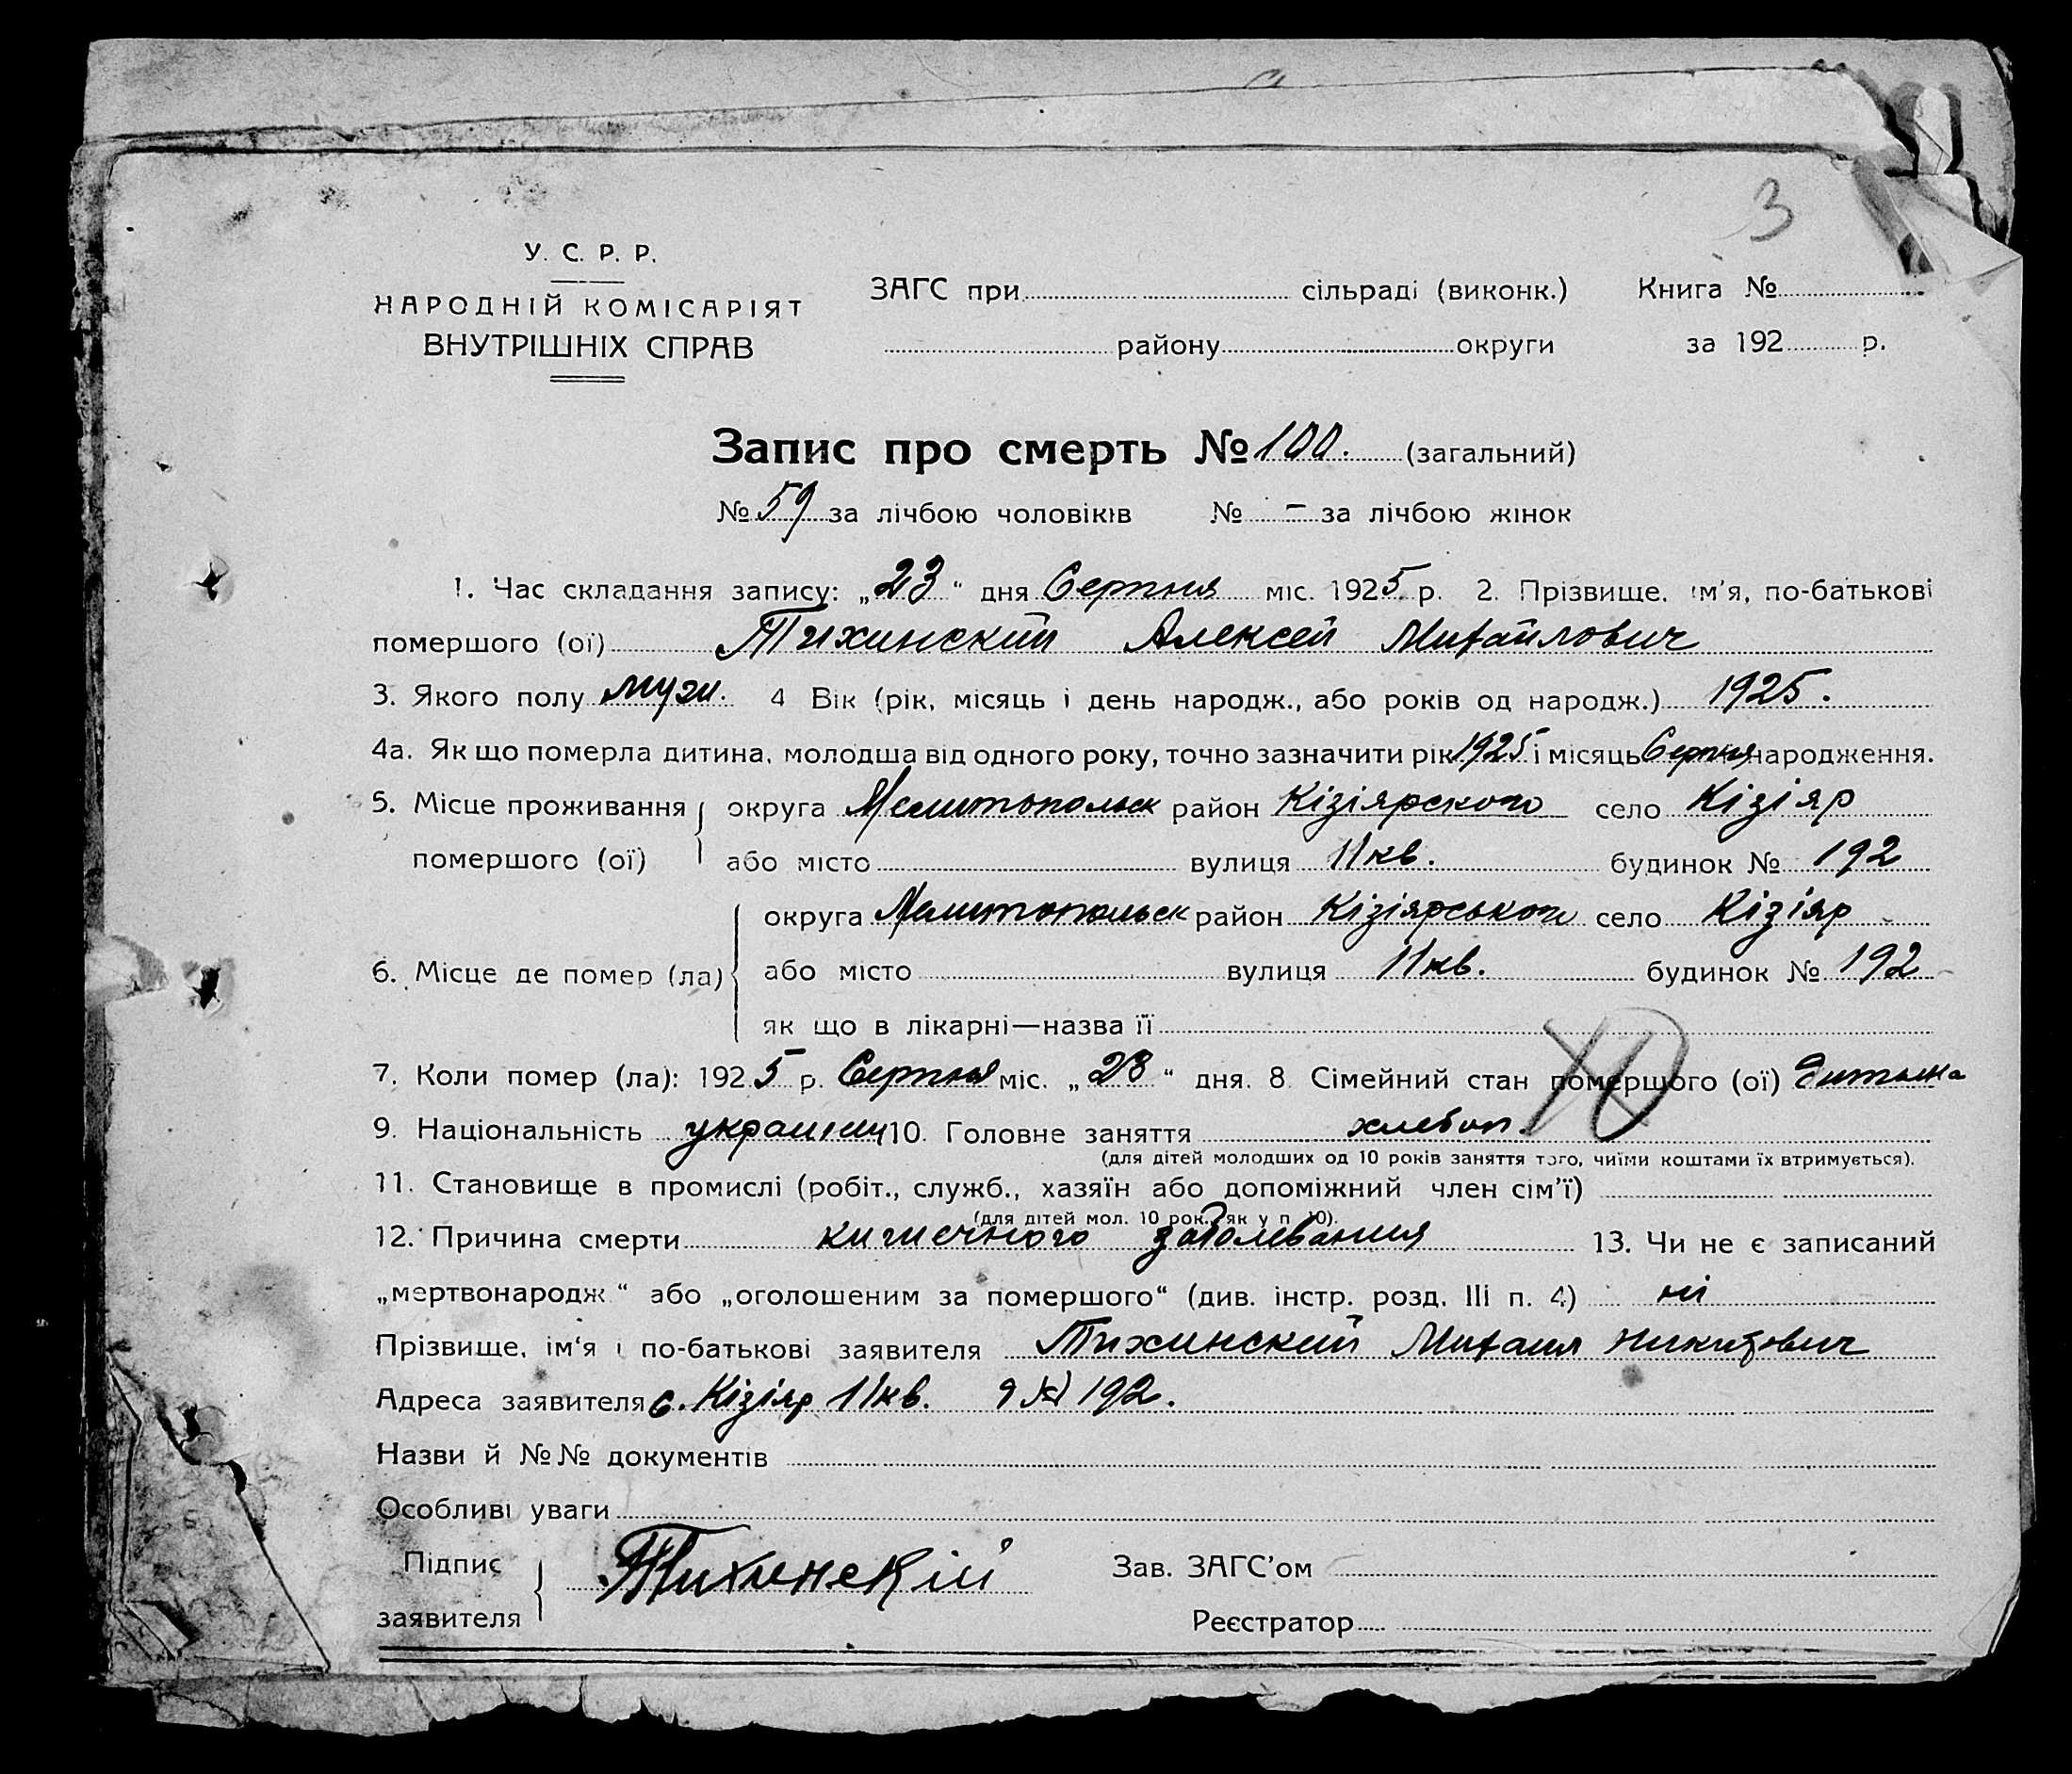 3
У. С. Р. Р.
НАРОДНІЙ КОМІСАРІЯТ
ВНУТРІШНІХ СПРАВ
ЗАГС при сільраді (виконк.) Книга №
району округи за 192 р.
Запис про смерть № 100. (загальний)
№ 59 за лічбою чоловіків № – за лічбою жінок
1. Час складання запису: „23“ дня Серпня міс. 1925 р. 2. Прізвище, ім'я, по-батькові
помершого (ої) Тихинский Алексей Михайлович
3. Якого полу муж. 4 Вік (рік, місяць і день народж., або років од народж.) 1925.
4а. Як що померла дитина, молодша від одного року, точно зазначити рік 1925 і місяць Серпня народження.
5. Місце проживання округа Мелитопольск район Кізіярского село Кізіяр
помершого (ої) або місто вулиця 11 кв. будинок № 192
округа Мелитопольск район Кізіярського село Кізіяр
6. Місце де помер (ла) або місто вулиця 11 кв. будинок № 192
як що в лікарні—назва її
7. Коли помер (ла): 1925 р. Серпня міс. „23“ дня. 8. Сімейний стан помершого (ої) Дитына
9. Національність 10. Головне заняття хлебоп.
(для дітей молодших од 10 років заняття того, чиїми коштами їх втримується).
11. Становище в промислі (робіт., служб., хазяїн або допоміжний член сім'ї)
(для дітей мол. 10 рок., як у п. 10).
12. Причина смерти кишечного заболевания 13. Чи не є записаний
„мертвонародж“ або „оголошеним за помершого“ (див. інстр. розд. III п. 4) ні
Прізвище, ім'я і по-батькові заявителя Тихинский Михаил Никитович
Адреса заявителя с. Кізіяр 11 кв. д № 192.
Назви й №№ документів
Особливі уваги
Підпис Тихинскій Зав. ЗАГС'ом
заявителя Реєстратор